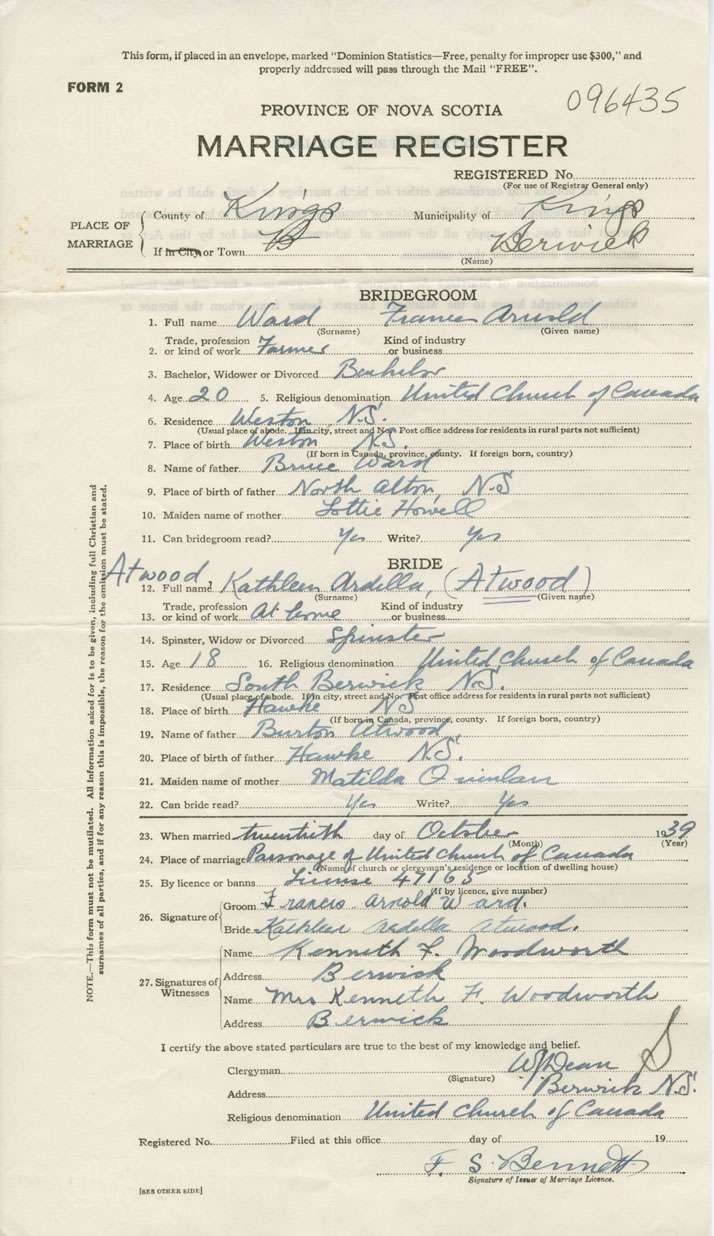 This form, if placed in an envelope, marked "Dominion Statistics—Free, penalty for improper use $300," and
properly addressed will pass through the Mail "FREE".
FORM 2
096435
PROVINCE OF NOVA SCOTIA
MARRIAGE REGISTER
REGISTERED No.
(For use of Registrar General only)
PLACE OF MARRIAGE
County of Kings Municipality of Kings
If in City or Town B Berwick
(Name)
BRIDEGROOM
1. Full name Ward Francis Arnold
(Surname) (Given name)
Trade, profession Kind of industry
2. or kind of work Farmer or business
3. Bachelor, Widower or Divorced Bachelor
4. Age 20 5. Religious denomination United Church of Canada
6. Residence Weston N.S.
(Usual place of abode. If in city, street and No. Post office address for residents in rural parts not sufficient)
7. Place of birth Weston N.S.
(If born in Canada, province, county. If foreign born, country)
8. Name of father Bruce Ward
9. Place of birth of father North Alton, N.S
10. Maiden name of mother Lottie Howell
11. Can bridegroom read? Yes Write? Yes
BRIDE
Atwood,
12. Full name Kathleen Ardella, (Atwood)
(Surname) (Given name)
Trade, profession Kind of industry
13. or kind of work At home or business
14. Spinster, Widow or Divorced Spinster
15. Age 18 16. Religious denomination United Church of Canada
17. Residence South Berwick N.S.
(Usual place of abode. If in city, street and No. Post office address for residents in rural parts not sufficient)
18. Place of birth Hawke NS
(If born in Canada, province, county. If foreign born, country)
19. Name of father Burton Atwood
20. Place of birth of father Hawke N.S.
21. Maiden name of mother Matilda Quinlan
22. Can bride read? Yes Write? Yes
23. When married twentieth day of October 1939
(Month) (Year)
24. Place of marriage Parsonage of United Church of Canada
(Name of church or clergyman's residence or location of dwelling house)
25. By licence or banns License 47165
(If by licence, give number)
26. Signature of
Groom Francis Arnold Ward.
Bride Kathleen Ardella Atwood.
27. Signatures of Witnesses
Name Kenneth F. Woodworth
Address Berwick
Name Mrs Kenneth F. Woodworth
Address Berwick
I certify the above stated particulars are true to the best of my knowledge and belief.
Clergyman W J Dean
(Signature)
Address Berwick N.S.
Religious denomination United Church of Canada
Registered No. Filed at this office day of 19
F. S. Bennett
Signature of Issuer of Marriage Licence.
[SEE OTHER SIDE]
NOTE.—This form must not be mutilated. All information asked for is to be given, including full Christian and
surnames of all parties, and if for any reason this is impossible, the reason for the omission must be stated.